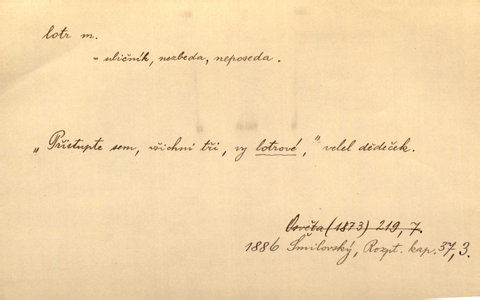 lotr m.
= uličník, nezbeda, neposeda.
„Přistupte sem, všichni tři, vy lotrové," velel dědeček.
Osvěta (1873) 219, 7.
1886 Šmilovský, Rozpt. kap. 37, 3.